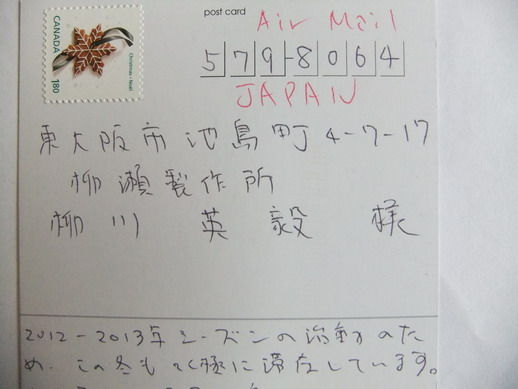 CANADA
Christmas • Noël
180
post card
Air Mail
579-8064
JAPAN
東大阪市池島町4-7-17
柳瀬製作所
柳川 英毅 様
2012-2013年シーズンの治動のた
め、この冬も に滞在しています。